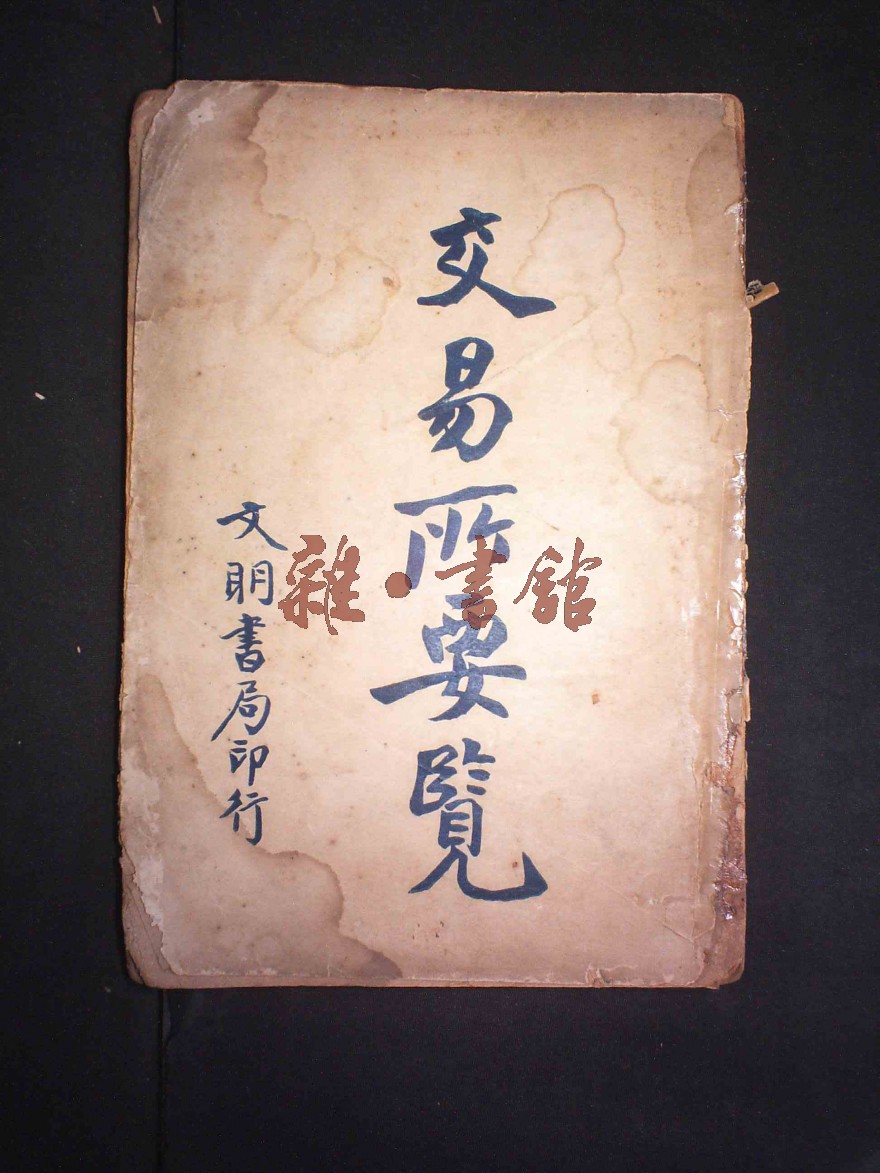 交易所要覽
文明書局印行
雜·書館